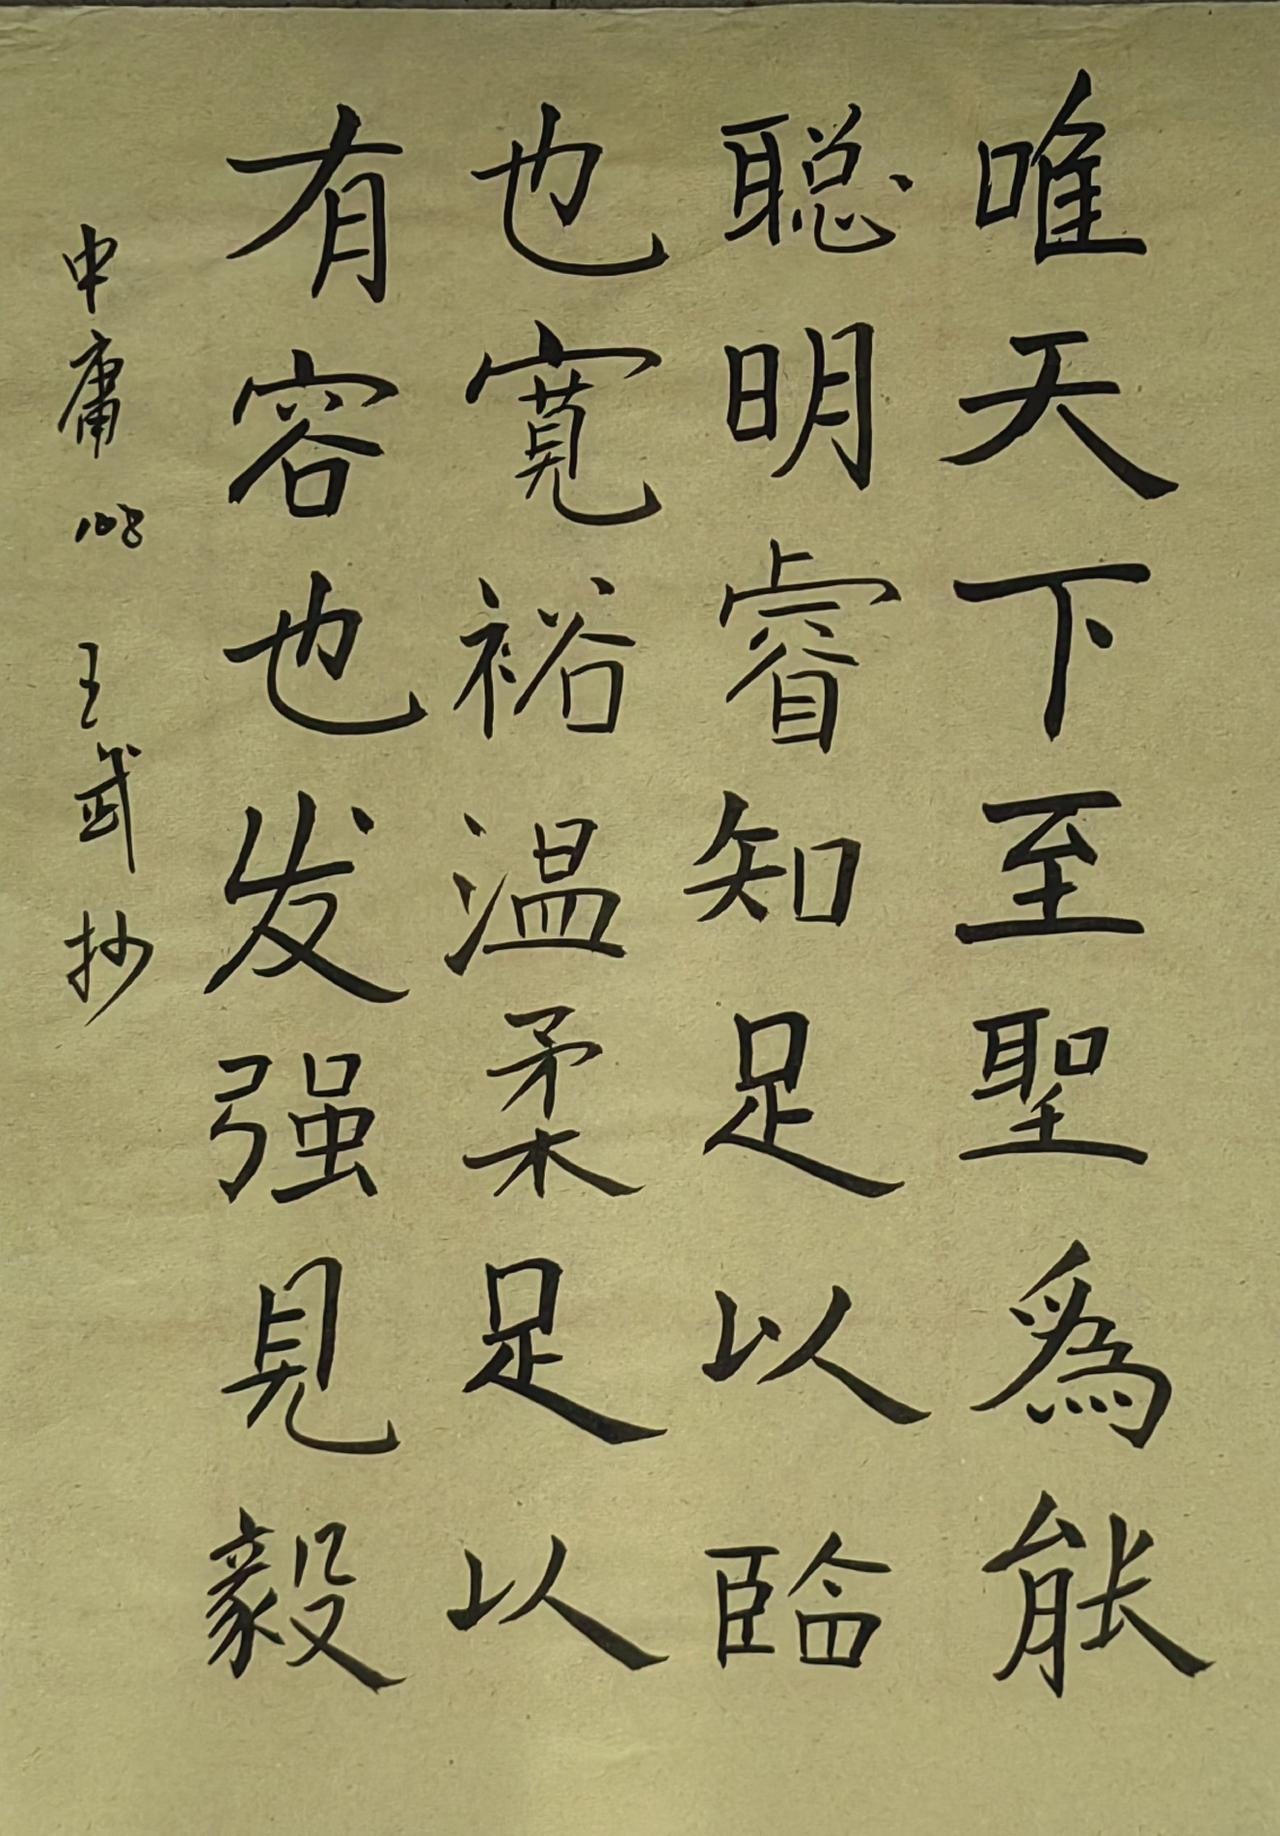 唯天下至聖爲能
聪明睿知足以臨
也寬裕温柔足以
有容也发强見毅
中庸 108 王武抄